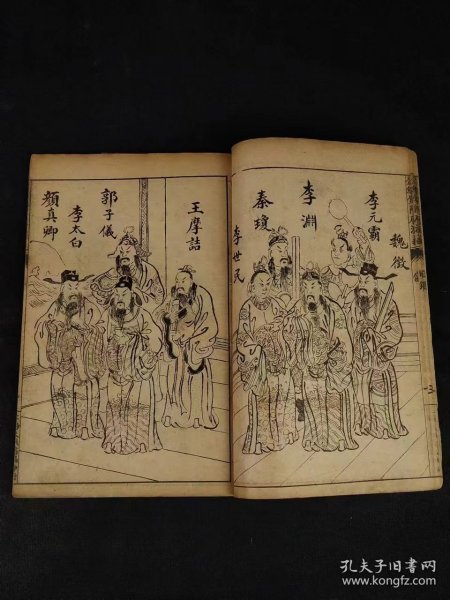 魏徵
李元霸
李淵
秦瓊
李世民
王摩詰
郭子儀
李太白
顏真卿
孔夫子旧书网
www.kongfz.com